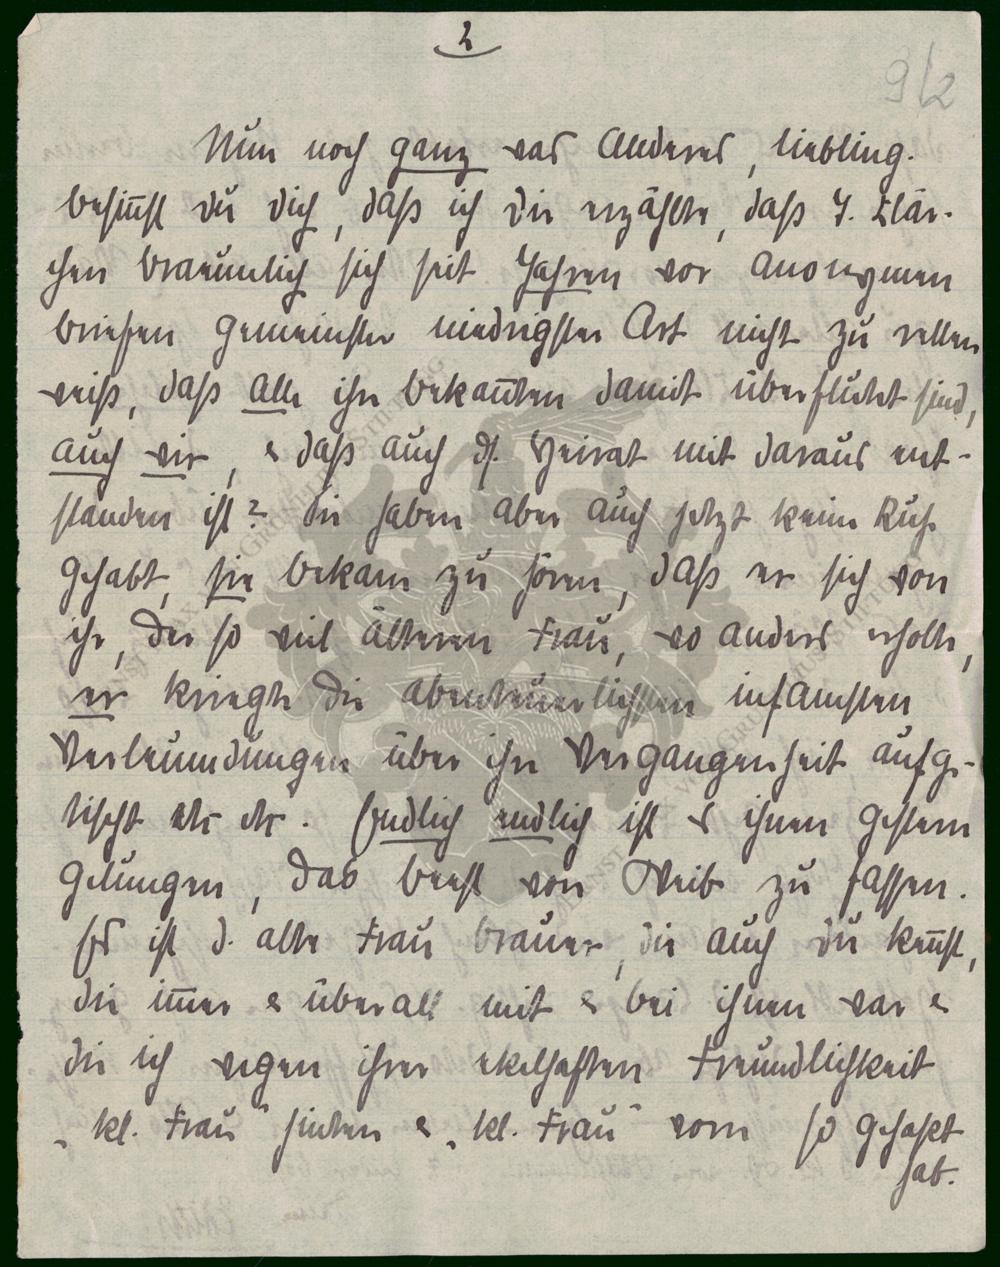 2
9/2
Nun noch ganz was Anderes, Liebling.
Besin̄st du dich, daß ich dir erzählte, daß F. Klär-
chen Braeunlich sich seit Jahren vor anonymen
Briefen gemeinster niedrigster Art nicht zu retten
weiß, daß alle ihre Bekan̄ten damit überflutet sind,
auch wir, & daß auch d. Heirat mit daraus ent-
standen ist? Sie haben aber auch jetzt keine Ruhe
gehabt, sie bekam zu hören, daß er sich von
ihr, der so viel älteren Frau, wo anders erhole,
er kriegte die abenteuerlichsten infamsten
Verleumdungen über ihre Vergangenheit aufge-
tischt etc etc. Endlich endlich ist es ihnen gestern
gelungen, das Beest von Weib zu fassen.
Es ist d. alte Frau Brauer, die auch du ken̄st,
die im̄er & überall mit & bei ihnen war &
die ich wegen ihrer ekelhaften Freundlichkeit
„kl. Frau" hinten & „kl. Frau" vorn so gehaßt
hab.